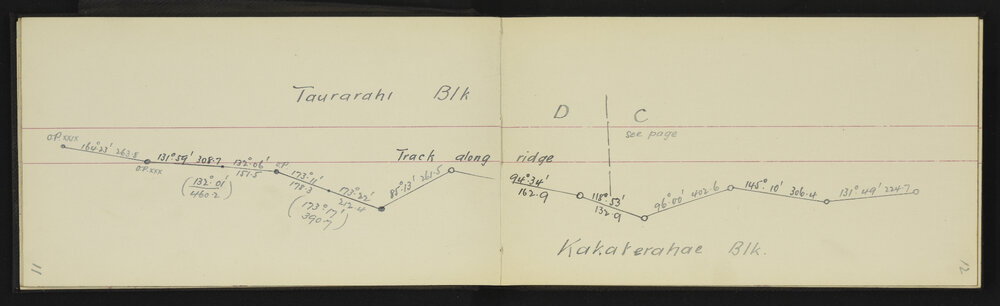 Taurarahi Blk
D C
see page
O.P. XXIX
164°23' 263.8
O.P. XXX
131°59' 308.7
132°06'
151.5
O.P
(132°01'
460.2)
173°11'
178.3
173°22'
212.4
(173°17'
390.7)
85°13' 261.5
Track along ridge
94°34'
162.9
118°53'
132.9
96°00' 402.6
145°10' 306.4
131°49' 224.7
Kakaterahae Blk.
11
12